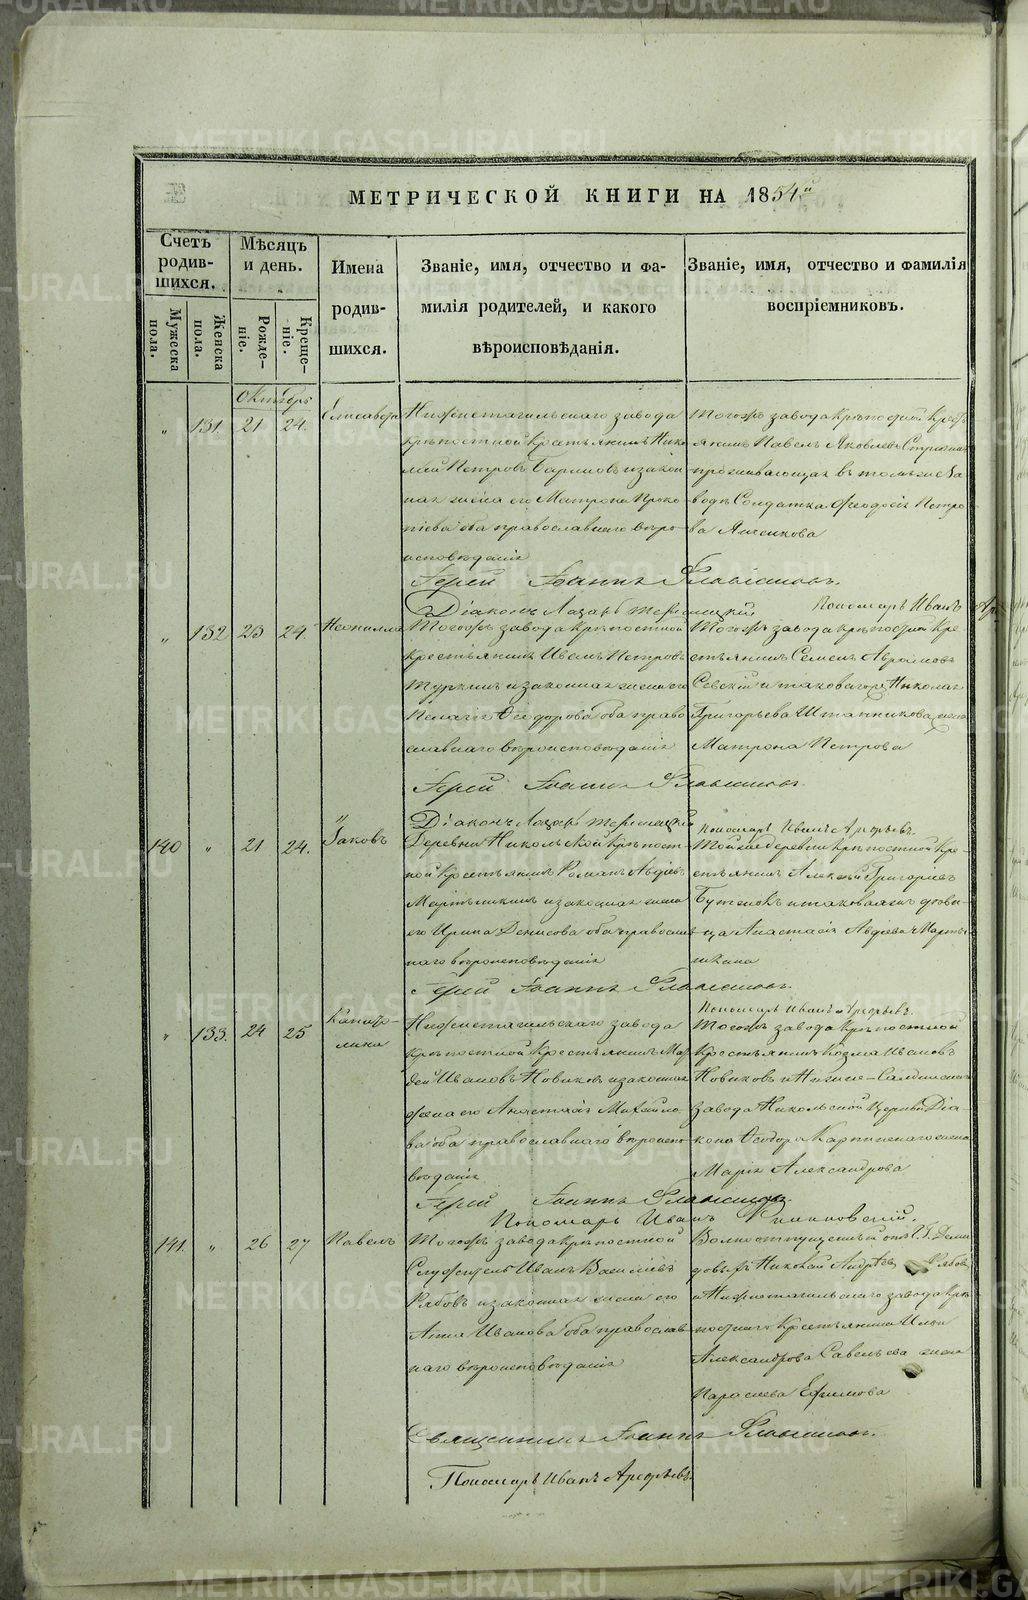 МЕТРИЧЕСКОЙ КНИГИ НА 1854й
Счетъ родив-шихся.
Мужеска пола.
Женска пола.
Мѣсяцъ и день.
Рожде-ніе.
Креще-ніе.
Имена
родив-
шихся.
Званіе, имя, отчество и фа-
милія родителей, и какого
вѣроисповѣданія.
Званіе, имя, отчество и фамилія
воспріемниковъ.
Октябрь
" 131 21 24. Елисавета
Нижнетагильскаго завода
крѣпостной крестьянинъ Нико
лай Петровъ и закон
ная жена его Матрона Проко
піева оба православнаго вѣро
исповѣданія
Тогожъ завода крѣпостной крест
янинъ Павелъ Яковлевъ
проживающая въ томъ же за
водѣ Солдатка Феодосія Петро
ва
Іерей Іоаннъ
Діаконъ Лазарь
Пономарь Иванъ
" 132 23 24 Неонилла
Тогожъ завода крѣпостной
крестьянинъ Иванъ Петровъ
Туркинъ и законная жена его
Пелагія Феодорова оба право
славнаго вѣроисповѣданія
Тогожъ завода крѣпостной кре
стьянинъ Семенъ Аврамовъ
Николая
Григорьева жена
Матрона Петрова
Іерей Іоаннъ
Діаконъ Лазарь
Пономарь Иванъ Арефьевъ.
140 " 21 24. Іаковъ
Деревни Никольской крѣпост
ной крестьянинъ Романъ Авдіевъ
Мартьянинъ и законная жена
его Ирина Денисова оба православ
наго вѣроисповѣданія
Той же деревни крѣпостной кре
стьянинъ Алексѣй Григоріевъ
и таковая же дѣви
ца Анастасія Авдіева
Іерей Іоаннъ
Пономарь Иванъ Арефьевъ.
" 133. 24 25 Капито-
лина
Нижнетагильскаго завода
крѣпостной крестьянинъ
Ивановъ Новиковъ и законная
жена его Анастасія Михайло
ва оба православнаго вѣроиспо
вѣданія
Тогожъ завода крѣпостной
крестьянинъ Козма Ивановъ
Новиковъ и Нижне-Салдинскаго
завода Никольской Церкви Діа
кона Феодора жена
Марія Александрова
Іерей Іоаннъ
Пономарь Иванъ
141. " 26 27 Павелъ
Тогожъ завода крѣпостной
Служитель Иванъ Василіевъ
Рябовъ и законная жена его
Анна Иванова оба православ
наго вѣроисповѣданія
Вольноотпущенный отъ Г.Г. Деми
довыхъ Николай Андрѣевъ Рябовъ
и Нижнетагильскаго завода крѣ
постнаго крестьянина Ильи
Александрова Савельева жена
Параскева Ефимова
Священникъ Іоаннъ
Пономарь Иванъ Арефьевъ.
METRIKI.GASO-URAL.RU